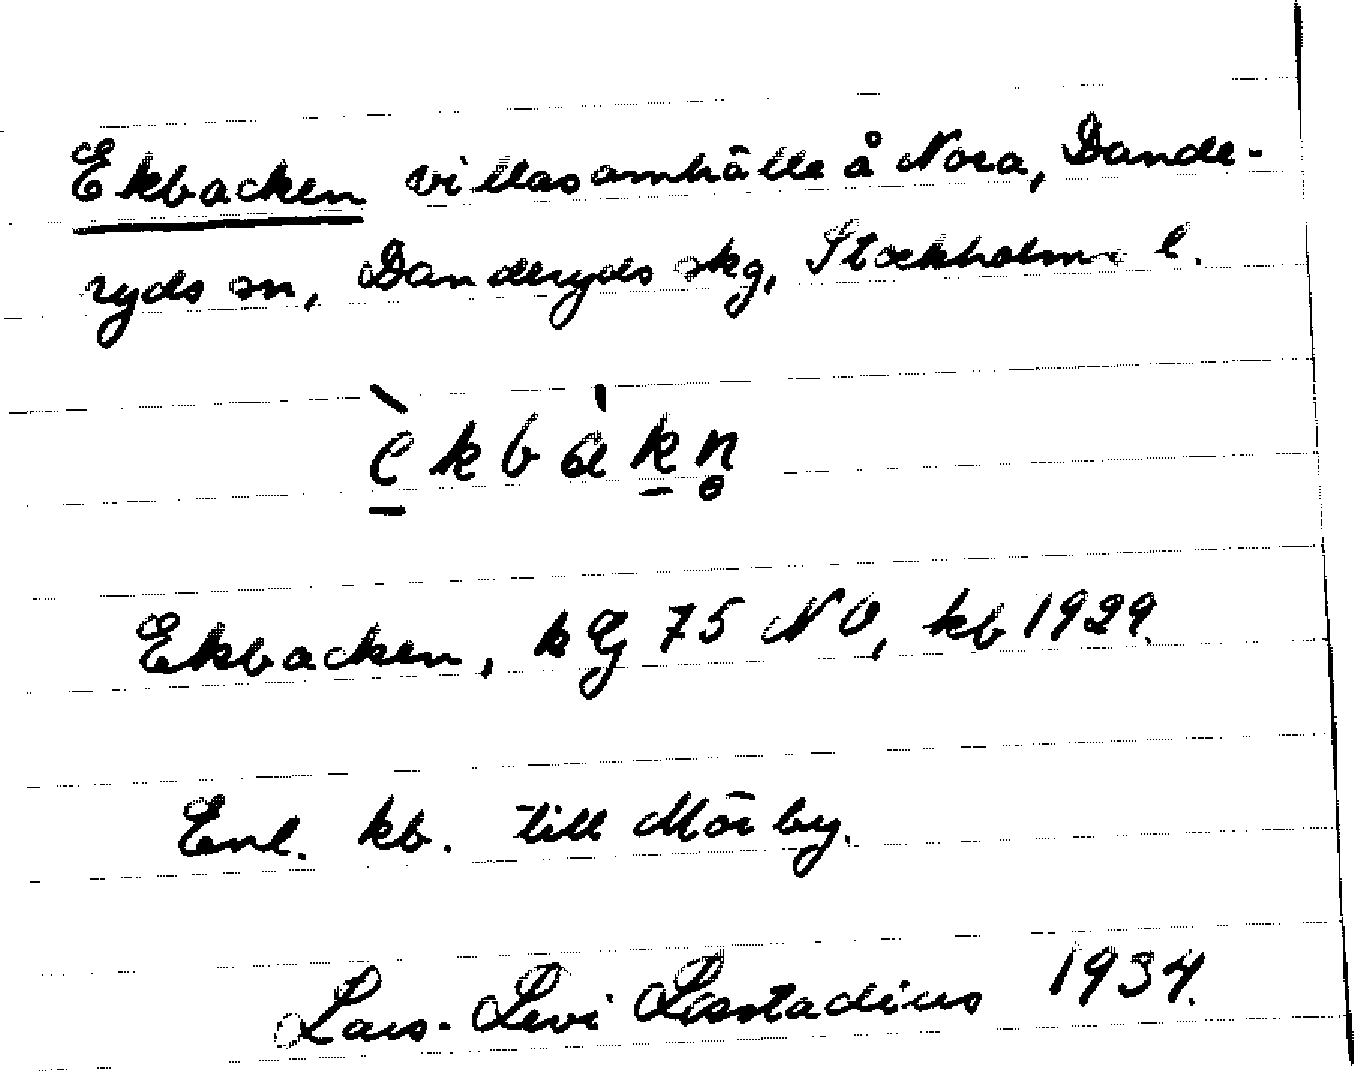 Ekbacken villasamhälle å Nora, Dande-
ryds sn, Danderyds skg, Stockholms l.
èkbàkn̥
Ekbacken, kg 75 NO, kb 1929.
Enl. kb. till Mörby.
Lars-Levi Læstadius 1934.